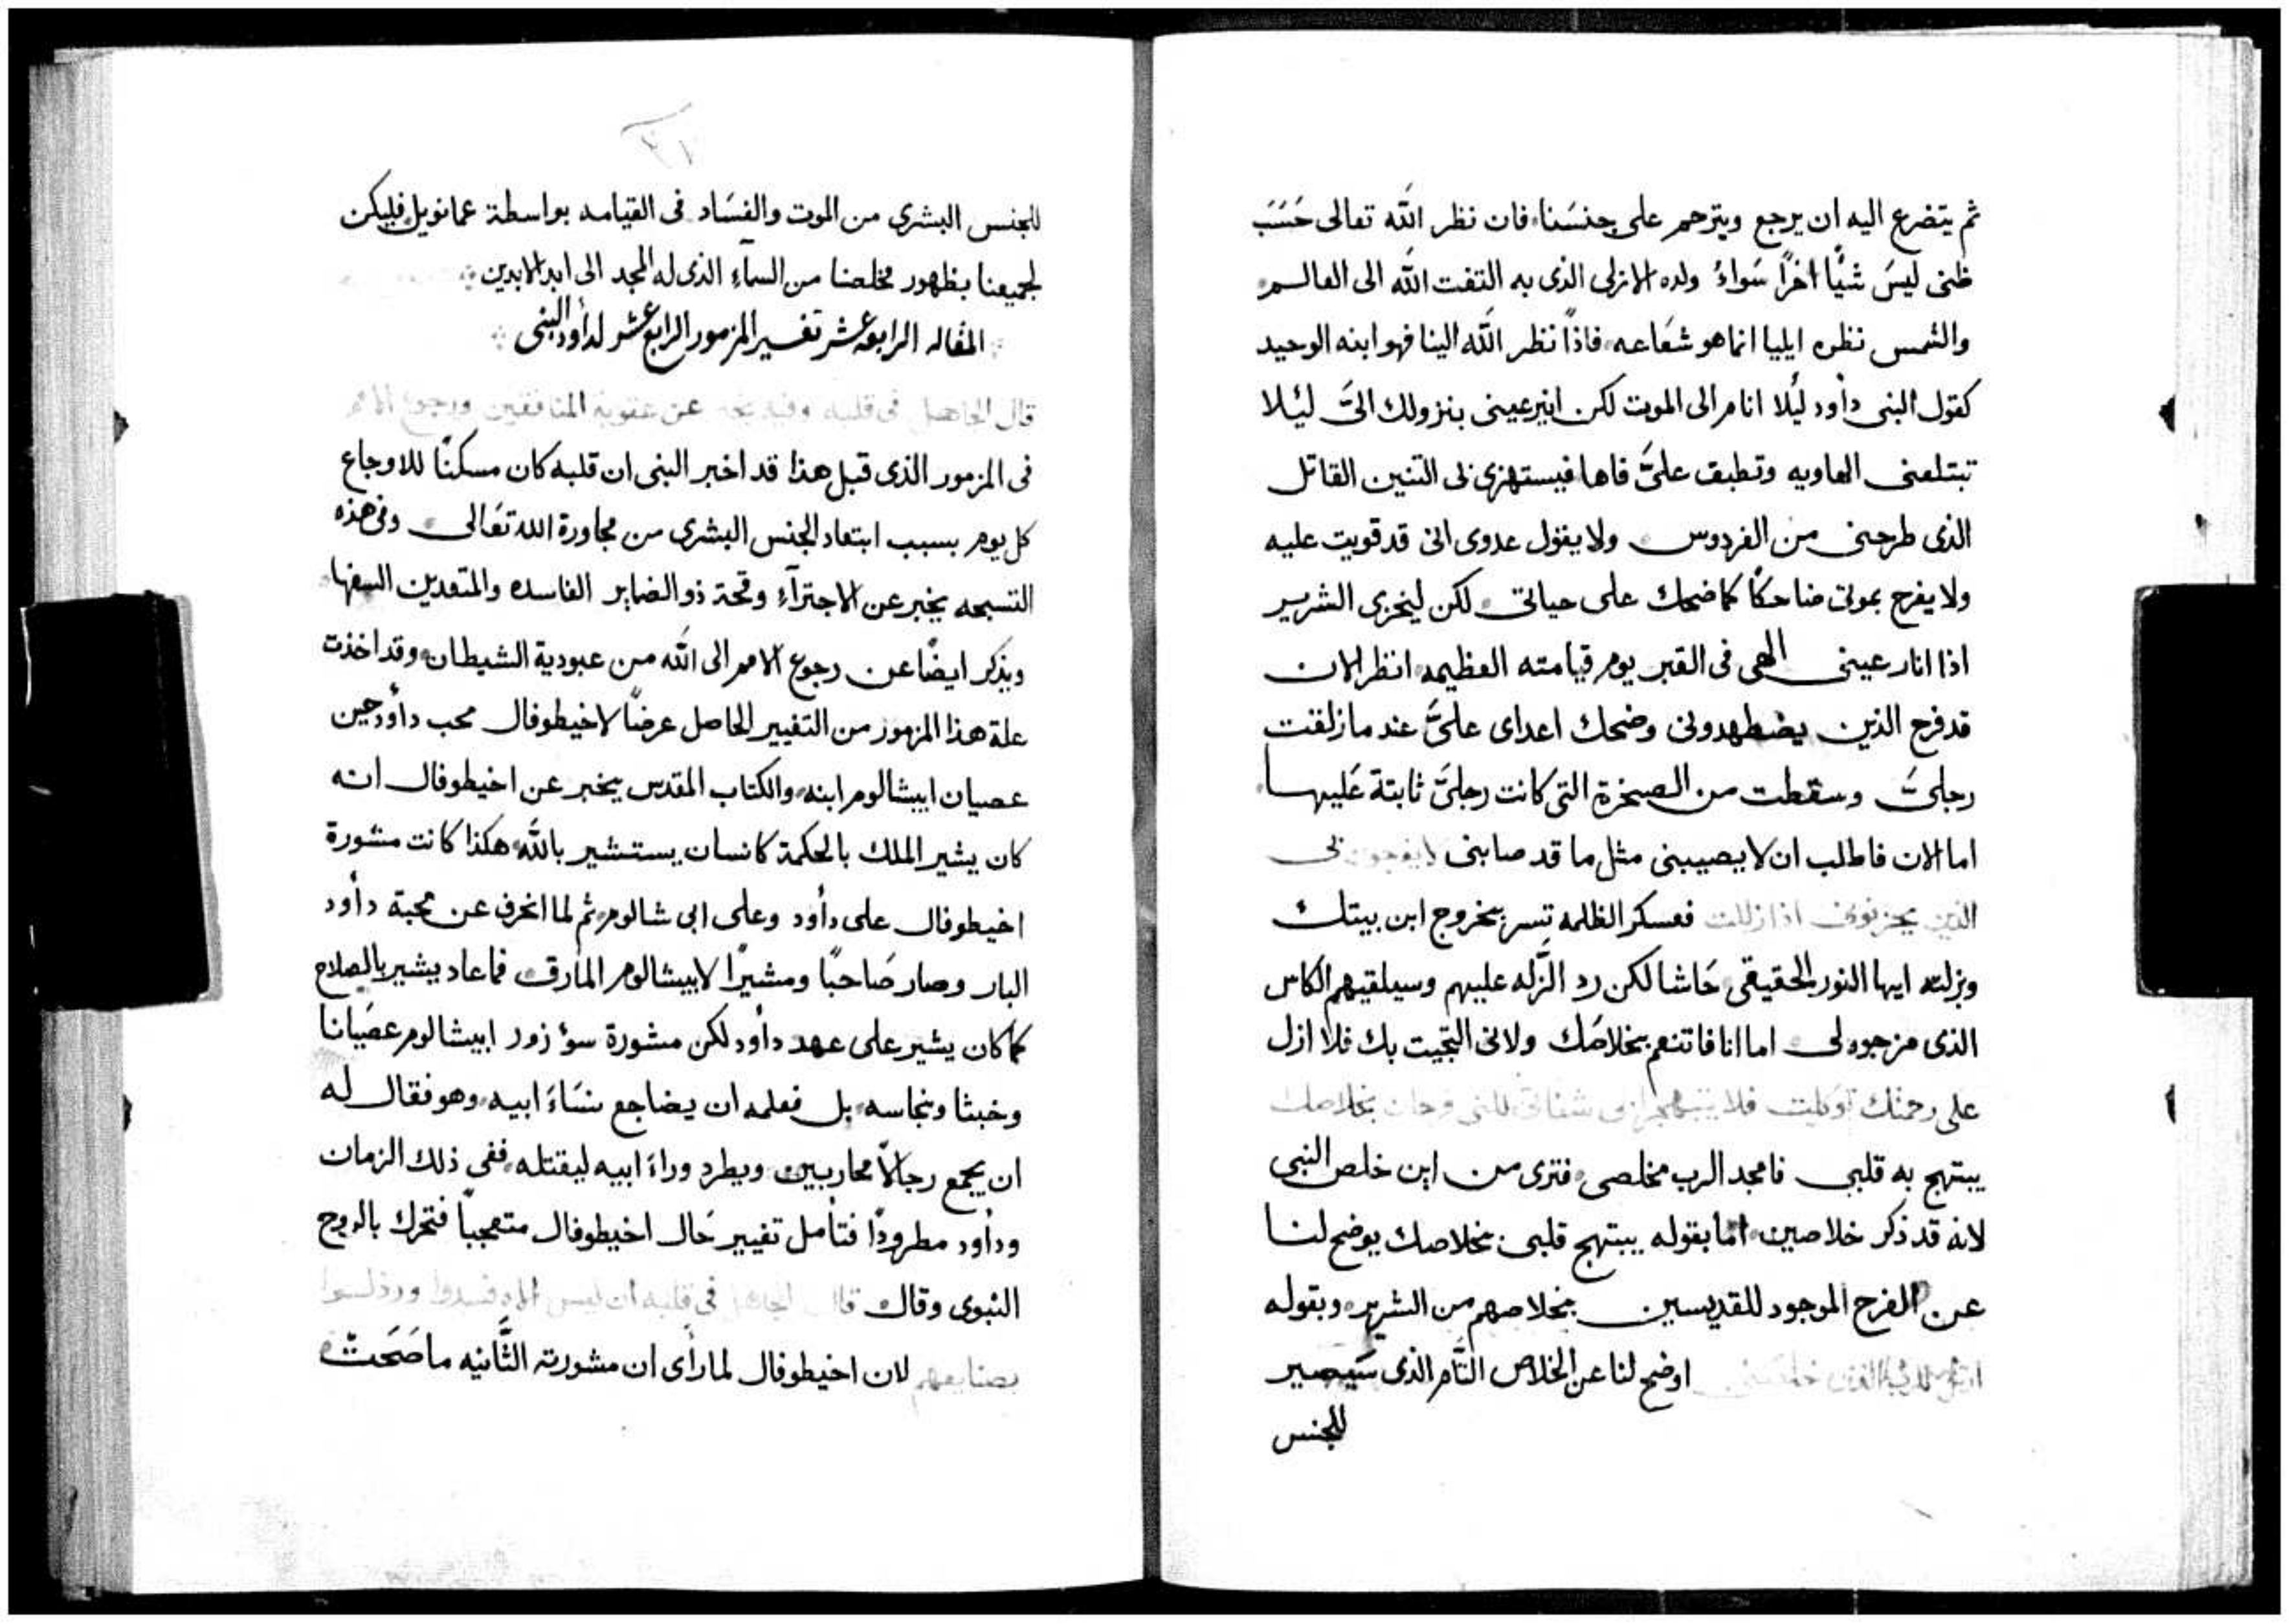 ثم يتضرع اليه ان يرجع ويترحم على جنسَنا فان نظر الله تعالى حَسَبَ
ظنى ليسَ شيًا اخرًا سَواءُ ولده الازلى الذى به التفت الله الى العالم
والشمس نظره ايليا انما هو شعَاعه فاذًا نظر الله الينا فهو ابنه الوحيد
كقول النبى داود ليُلا انام الى الموت لكن انير عينى بنزولك الىَّ ليُلا
تبتلعنى الهاويه وتطبق علىَّ فاها فيستهزى بى التنين القاتل
الذى طرحنى من الفردوس ولا يقول عدوى انى قد قويت عليه
ولا يفرح بموتى ضاحكًا كما ضحك على حياتى لكن ليخزى الشرير
اذا انار عينى الهى فى القبر يوم قيامته العظيمه انظر الان
قد فرح الذين يضطهدونى وضحك اعداى علىَّ عند ما زلقت
رجلىَّ وسقطت من الصخرة التى كانت رجلىَّ ثابتة عَليها
اما الان فاطلب ان لا يصيبنى مثل ما قد صابنى لا يفرحون بى
الذين يحزنونى اذا زللت فعسكر الظلمه تسر بخروج ابن بيتك
وبزلته ايها النور الحقيقى حَاشا لكن رد الزَّله عليهم وسيلقيهم الكاس
الذى مزجوه لى اما انا فاتنعم بخلاصَك ولانى التجيت بك فلا ازل
على رحمتك توكلت فلا
يبتهج به قلبى فامجد الرب مخلصى فترى من اين خلص النبى
لانه قد ذكر خلاصين اما بقوله يبتهج قلبى بخلاصك يوضح لنا
عن الفرح الموجود للقديسين بخلاصهم من الشرير وبقوله
اوضح لنا عن الخلاص التَّام الذى سَيصير
للجنس
للجنس البشرى من الموت والفسَاد فى القيامه بواسطة عمانويل فليكن
لجميعنا بظهور مخلصنا من السمآءِ الذى له المجد الى ابد الابدين
المقاله الرابعه عشر تفسير المزمور الرابع عشر لداود النبى
قال الجاهل فى قلبه وفيه يخبر عن عقوبة المنافقين ورجوع الامم
فى المزمور الذى قبل هذا قد اخبر النبى ان قلبه كان مسكنًا للاوجاع
كل يوم بسبب ابتعاد الجنس البشرى من مجاورة الله تعَالى وفى هذه
التسبحه يخبر عن الاجترآءِ وقحة ذو الضماير الفاسده والمتعدين السفها
ويذكر ايضًا عن رجوع الامم الى الله من عبودية الشيطان وقد اخذت
علة هذا المزمور من التغيير الحاصل عرضًا لاخيطوفال محب دأود حين
عصيان ابيشالوم ابنه والكتاب المقدس يخبر عن اخيطوفال انه
كان يشير الملك بالحكمة كانسان يستشير بالله هكذا كانت مشورة
اخيطوفال على دأود وعلى ابى شالوم ثم لما انحرف عن محبة دأود
البار وصار صَاحبًا ومشيرًا لابيشالوم المأرق فما عاد يشير بالصلاح
كما كان يشير على عهد دأود لكن مشورة سؤ زور ابيشالوم عصَيانا
وخبثا ونجاسه بل فعلمه ان يضاجع نسَاءَ ابيه وهو فقال له
ان يجمع رجالاً محاربين ويطرد وراءَ ابيه ليقتله ففى ذلك الزمان
ودأود مطرودًا فتأمل تغيير حَال اخيطوفال متعجباً فتحرك بالروح
النبوى وقال قال الجاهل فى قلبه ان ليس اله فسدوا ورذلوا
بصنايعهم لان اخيطوفال لما رأى ان مشورته الثَّانيه ما صَحَت